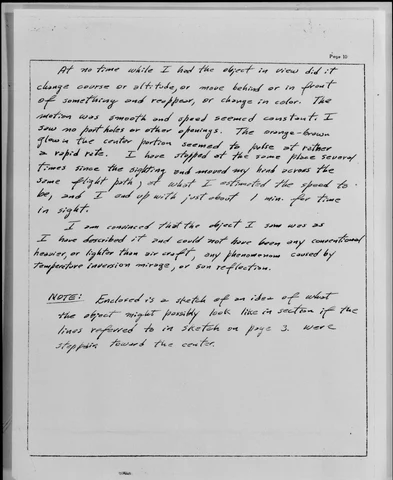 Page 10
At no time while I had the object in view did it
change course or altitude, or move behind or in front
of something and reappear, or change in color. The
motion was smooth and speed seemed constant. I
saw no port holes or other openings. The orange-brown
glow in the center portion seemed to pulse at rather
a rapid rate. I have stopped at the same place several
times since the sighting and moved my hand across the
same flight path, at what I estimated the speed to
be, and I end up with just about 1 min. for time
in sight.
I am convinced that the object I saw was as
I have described it and could not have been any conventional
heavier, or lighter than air craft, any phenomenon caused by
temperature inversion mirage, or sun reflection.
NOTE: Enclosed is a sketch of an idea of what
the object might possibly look like in section if the
lines referred to in sketch on page 3. were
steps in toward the center.